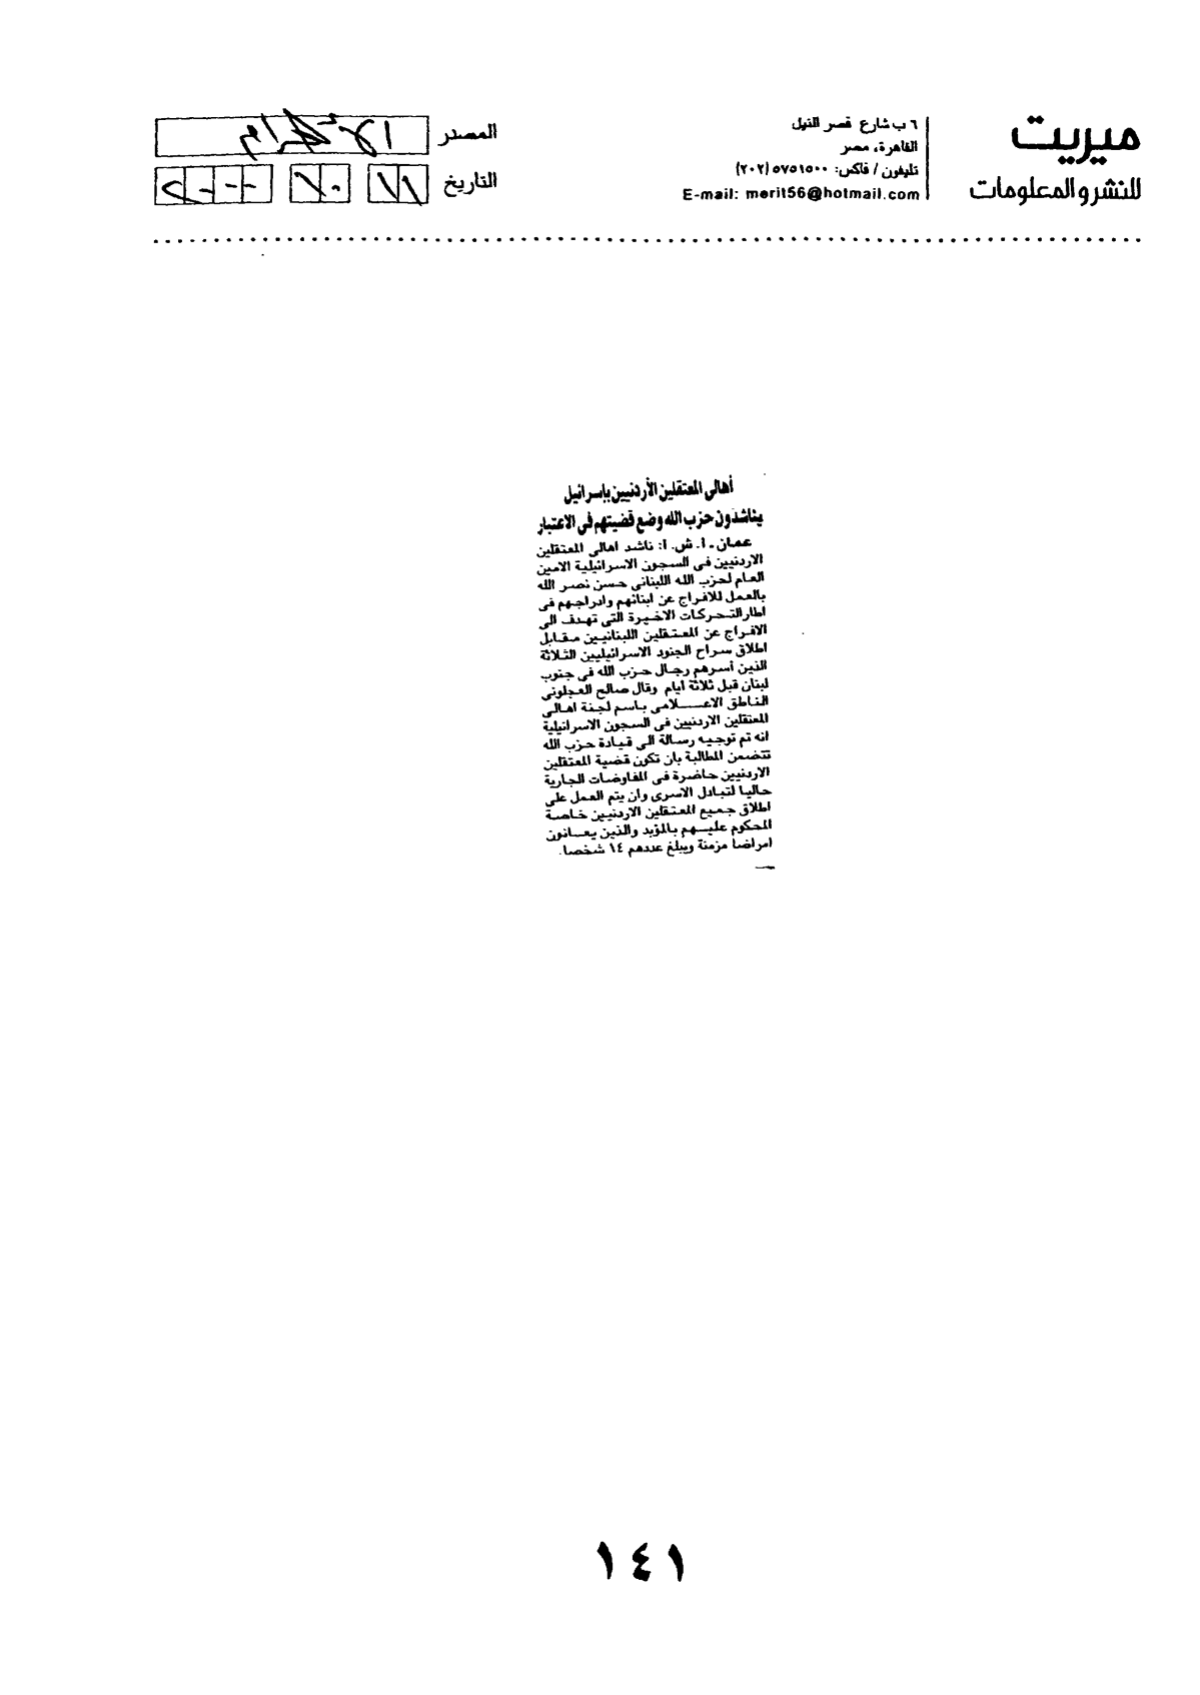 ميريت
للنشر والمعلومات
٦ ب شارع قصر النيل
القاهرة، مصر
تليفون / فاكس: ٥٧٥١٥٠٠ (٢٠٢)
E-mail: merit56@hotmail.com
المصدر الأهرام
التاريخ ١١ ١٠ ٢٠٠٠
أهالى المعتقلين الأردنيين بإسرائيل
يناشدون حزب الله وضع قضيتهم فى الاعتبار
عمان ـ ا. ش. ا: ناشد اهالى المعتقلين
الاردنيين فى السجون الاسرائيلية الامين
العام لحزب الله اللبنانى حسن نصر الله
بالعمل للافراج عن ابنائهم وادراجهم فى
اطار التحركات الاخيرة التى تهدف الى
الافراج عن المعتقلين اللبنانيين مقابل
اطلاق سراح الجنود الاسرائيليين الثلاثة
الذين أسرهم رجال حزب الله فى جنوب
لبنان قبل ثلاثة أيام وقال صالح العجلونى
الناطق الاعلامى باسم لجنة اهالى
المعتقلين الاردنيين فى السجون الاسرائيلية
انه تم توجيه رسالة الى قيادة حزب الله
تتضمن المطالبة بان تكون قضية المعتقلين
الاردنيين حاضرة فى المفاوضات الجارية
حاليا لتبادل الاسرى وان يتم العمل على
اطلاق جميع المعتقلين الاردنيين خاصة
المحكوم عليهم بالمؤبد والذين يعانون
امراضا مزمنة ويبلغ عددهم ١٤ شخصا.
١٤١